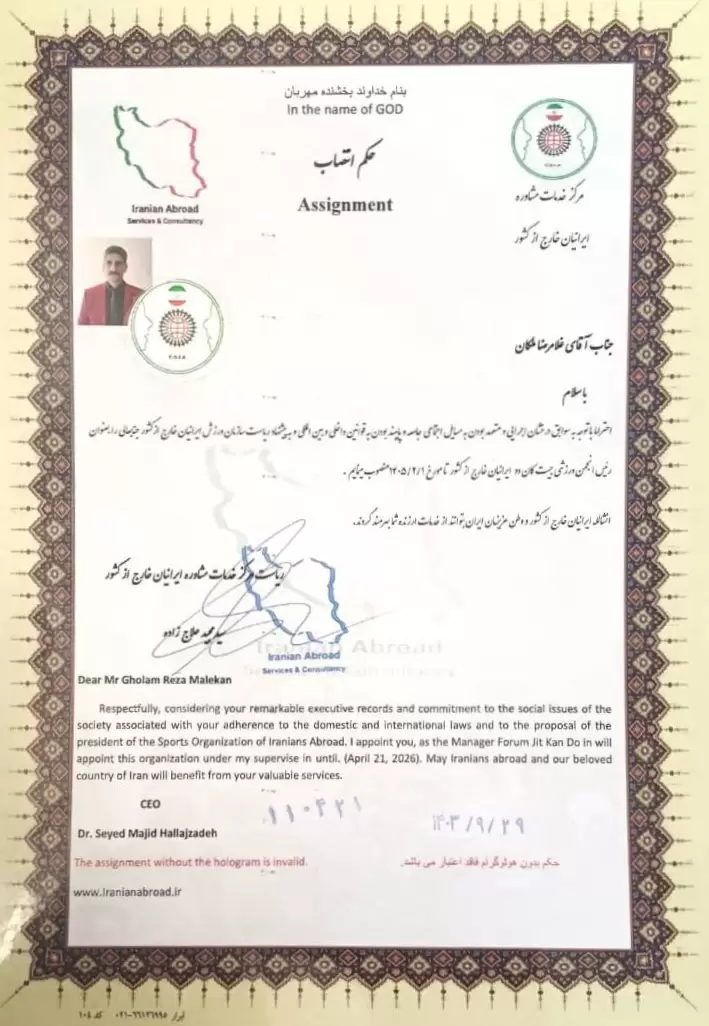 بنام خداوند بخشنده مهربان
In the name of GOD
حکم انتصاب
Assignment
Iranian Abroad
Services & Consultancy
مرکز خدمات مشاوره
ایرانیان خارج از کشور
جناب آقای غلامرضا ملکان
باسلام
احتراما باتوجه به سوابق درخشان اجرایی و متعهد بودن به مسایل اجتماعی جامعه و پایبند بودن به قوانین داخلی و بین المللی و به پیشنهاد ریاست سازمان ورزش ایرانیان خارج از کشور جنابعالی را بعنوان
رئیس انجمن ورزشی جیت کان دو ایرانیان خارج از کشور تا مورخ ۱۴۰۵/۲/۱ منصوب مینمایم .
انشالله ایرانیان خارج از کشور و وطن عزیزمان ایران بتوانند از خدمات ارزنده شما بهرمند گردند.
ریاست مرکز خدمات مشاوره ایرانیان خارج از کشور
سید مجید حلاج زاده
Iranian Abroad
Iranian Abroad
Services & Consultancy
Dear Mr Gholam Reza Malekan
Respectfully, considering your remarkable executive records and commitment to the social issues of the
society associated with your adherence to the domestic and international laws and to the proposal of the
president of the Sports Organization of Iranians Abroad. I appoint you, as the Manager Forum Jit Kan Do in will
appoint this organization under my supervise in until. (April 21, 2026). May Iranians abroad and our beloved
country of Iran will benefit from your valuable services.
CEO
۱۱۰۴۲۱
۱۴۰۳/۹/۲۹
Dr. Seyed Majid Hallajzadeh
The assignment without the hologram is invalid.
حکم بدون هولوگرام فاقد اعتبار می باشد.
www.iranianabroad.ir